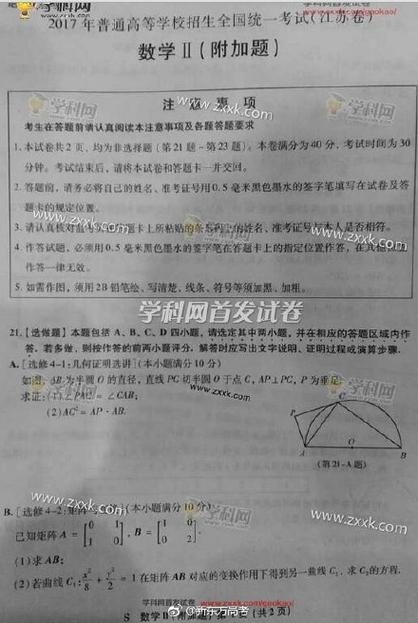 学科网
学科网首发试卷
www.zxxk.com/gaokao/
2017 年普通高等学校招生全国统一考试(江苏卷)
数学Ⅱ(附加题)
学科网
www.zxxk.com
注 意 事 项
考生在答题前请认真阅读本注意事项及各题答题要求
1. 本试卷共 2 页, 均为非选择题(第 21 题~第 23 题)。本卷满分为 40 分, 考试时间为 30
分钟。考试结束后, 请将本试卷和答题卡一并交回。
2. 答题前, 请务必将自己的姓名、准考证号用 0.5 毫米黑色墨水的签字笔填写在试卷及答
题卡的规定位置。
3. 请认真核对 答题卡上所粘贴的条形码上的姓名、准考证号与本人是否相符。
4. 作答试题, 必须用 0.5 毫米黑色墨水的签字笔在答题卡上的指定位置作答, 在其
作答一律无效。
5. 如需作图, 须用 2B 铅笔绘、写清楚, 线条、符号等须加黑、加粗。
学科网
www.zxxk.com
学科网首发试卷
21. [选做题] 本题包括 A、B、C、D 四小题, 请选定其中两小题, 并在相应的答题区域内作
答. 若多做, 则按作答的前两小题评分. 解答时应写出文字说明、证明过程或演算步骤.
A. [选修 4-1: 几何证明选讲](本小题满分 10 分)
如图, AB 为半圆 O 的直径, 直线 PC 切半圆 O 于点 C, AP⊥PC, P 为垂足.
求证: (1) ∠PAC = ∠CAB;
(2) AC² = AP · AB.
www.zxxk.com
学科网
C
P
A
O
B
(第 21-A 题)
B. [选修 4-2: 矩阵 ](本小题满分 10 分)
已知矩阵 A = [0 1
1 0], B = [1 0
0 2].
(1) 求 AB;
(2) 若曲线 C₁: x²/8 + y²/2 = 1 在矩阵 AB 对应的变换作用下得到另一曲线 C₂, 求 C₂ 的方程.
www.zxxk.com
学科网
学科网首发试卷
www.zxxk.com/gaokao/
S 数学Ⅱ(附加题) 第 页(共 2 页)
@新东方高考